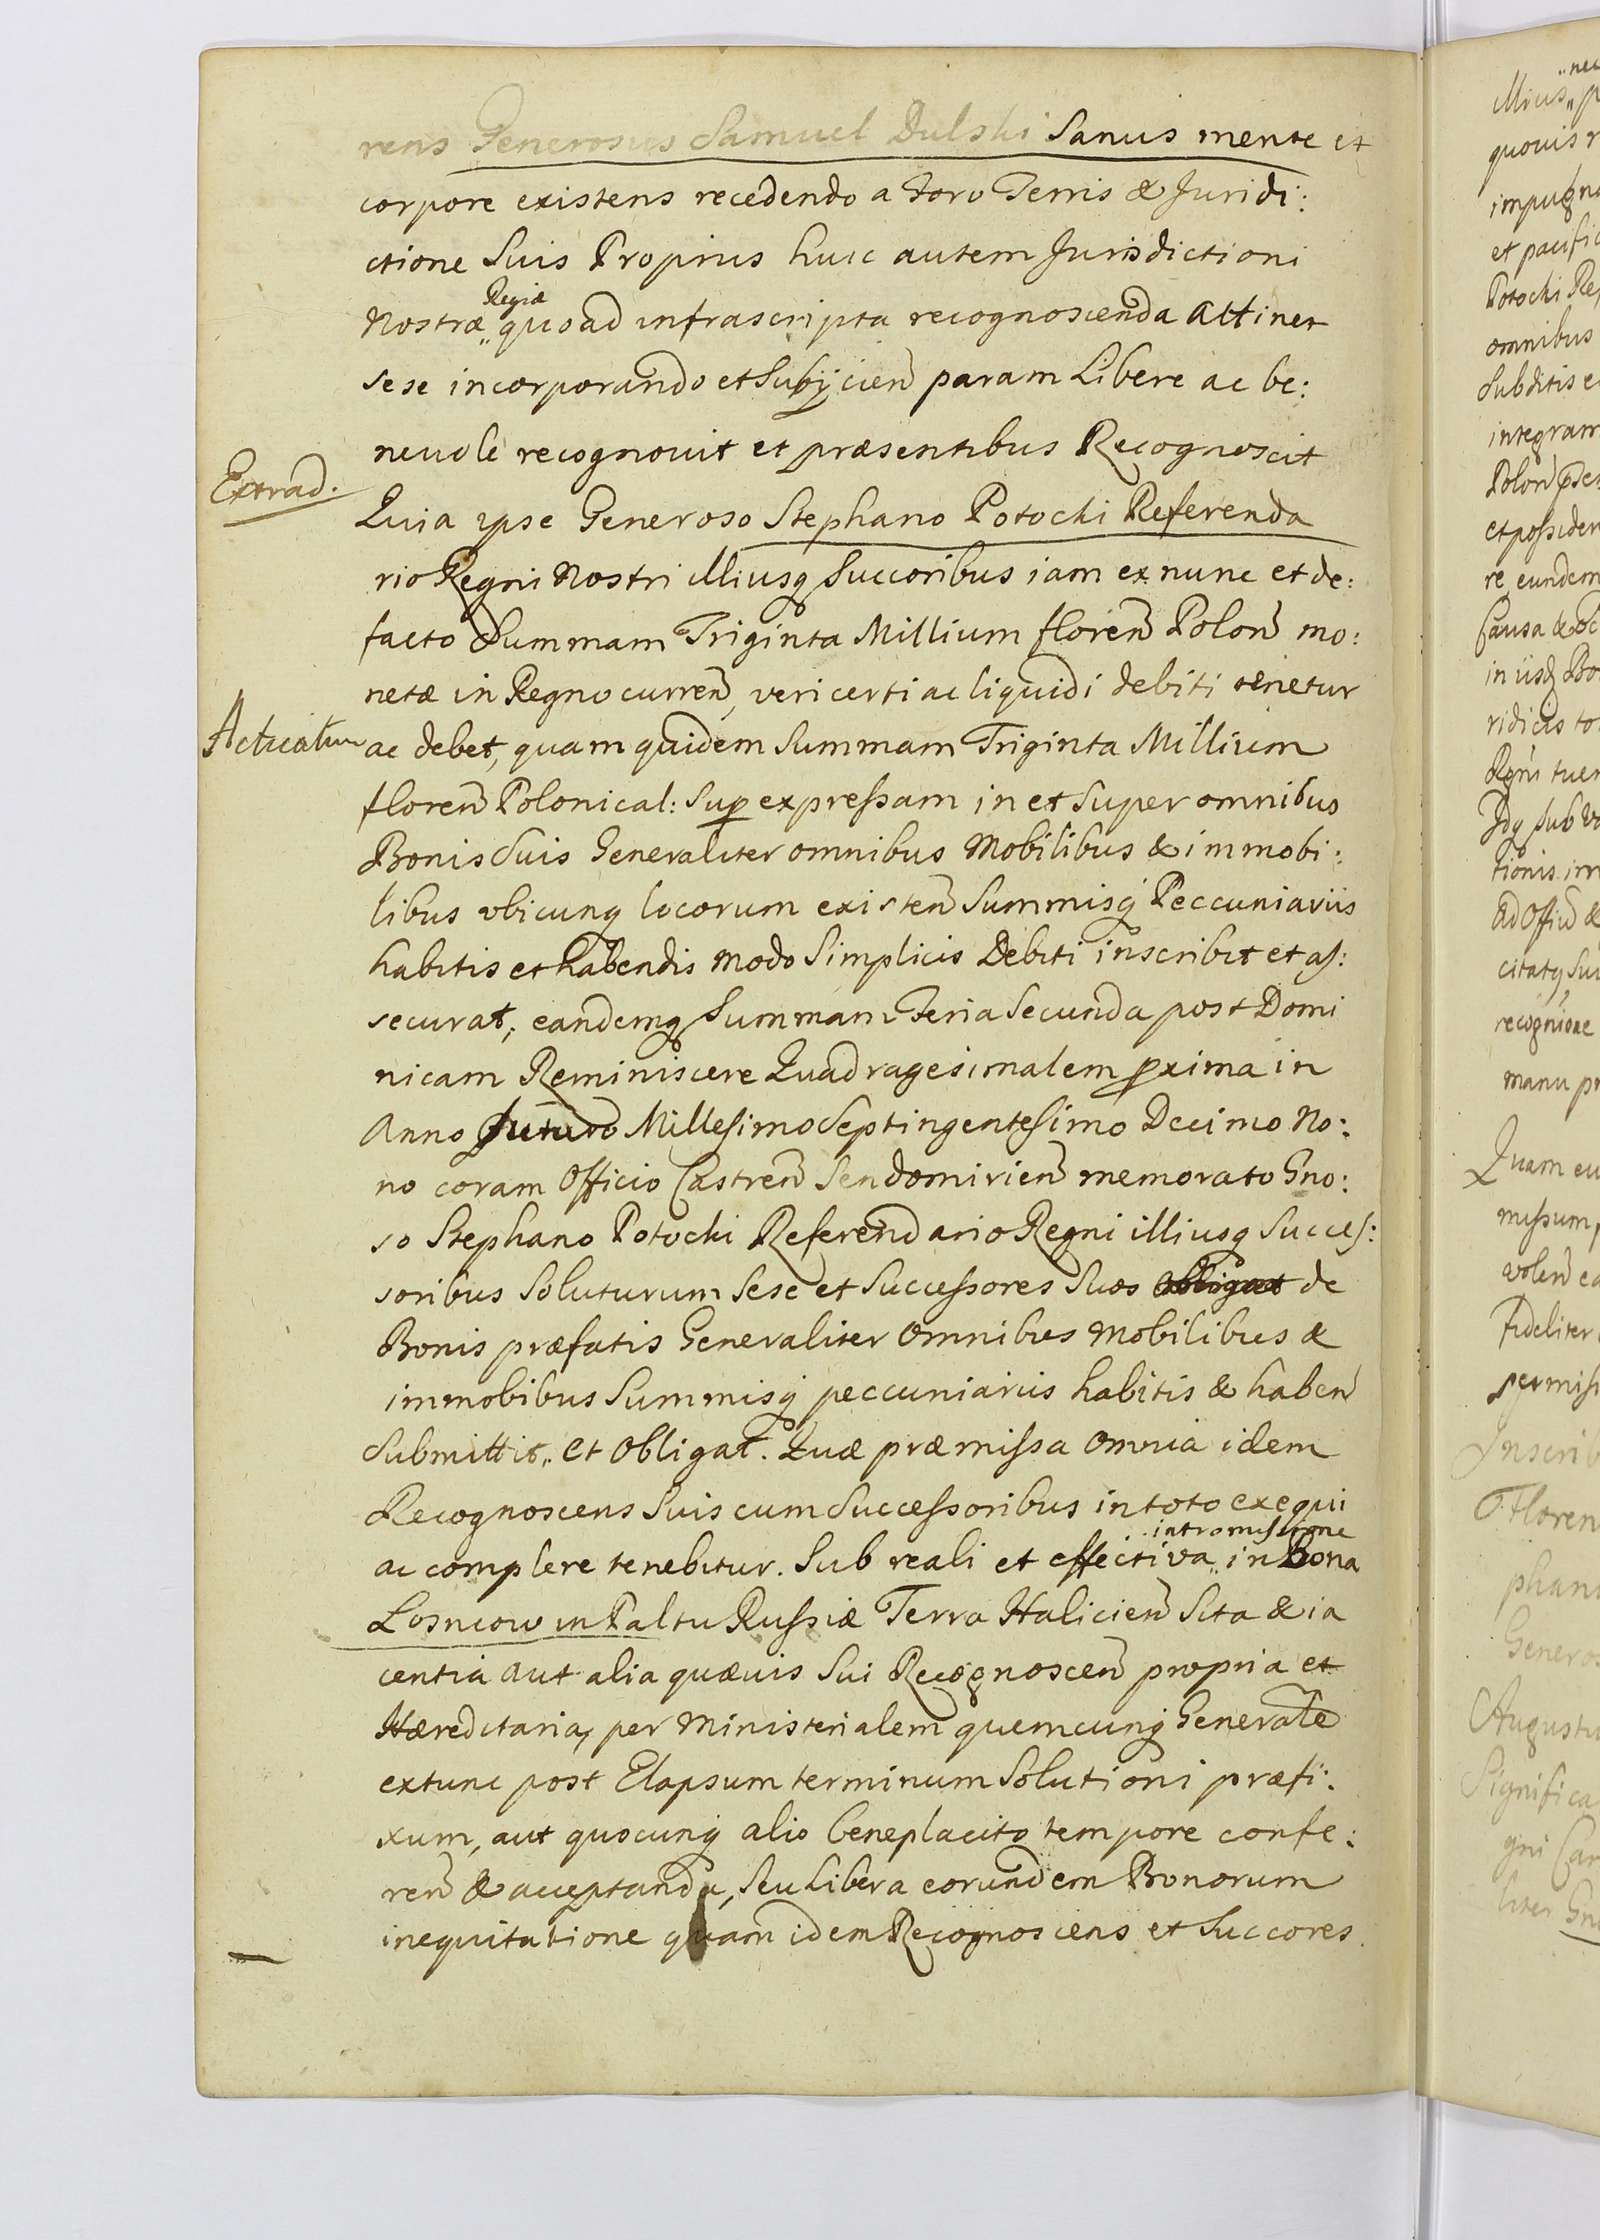 rens Generosus Samuel Dulski Sanus mente et
corpore existens recedendo a Foro Terris & Juridi:
ctione Suis Proprius huic autem Jurisdictioni
Regiæ
Nostræ quoad infrascripta recognoscenda attinet
sese incorporando et Subijcien param Libere ac be:
neuole recognouit et præsentibus Recognoscit
Extrad.
Quia ipse Generoso Stephano Potocki Referenda
rio Regni Nostri illiusq Succoribus iam ex nunc et de:
facto Summam Triginta Millium floren Polon mo:
netæ in Regno curren, veri certi ac liquidi debiti tenetur
Acticatum
ac debet, quam quidem Summam Triginta Millium
floren Polonical: Sup expressam in et Super omnibus
Bonis Suis Generaliter omnibus Mobilibus & immobi:
libus vbicunq locorum existen Summisq Peccuniariis
habitis et habendis modo Simplicis Debiti inscribit et as:
securat, eandemq Summam Feria Secunda post Domi
nicam Reminiscere Quadragesimalem pxima in
Anno Futuro Millesimo Septingentesimo Decimo No:
no coram Officio Castren Sendomirien memorato Gno:
so Stephano Potocki Referendario Regni illiusq Succes:
soribus Soluturum Sese et Successores Suos obligat de
Bonis præfatis Generaliter Omnibus Mobilibus &
immobibus Summisq peccuniariis habitis & haben
Submittit, et Obligat. Quæ præmissa Omnia idem
Recognoscens Suis cum Successoribus in toto exequi
intromissione
ac complere tenebitur. Sub reali et effectiva in Bona
Losniow in Paltu Russiæ Terra Halicien Sita & ia
centia aut alia quæuis Sui Recognoscen propria et
Hæreditaria, per Ministerialem quemcunq Generale
extunc post Elapsum terminum Solutioni præfi:
xum, aut quocunq alio beneplacito tempore confe:
ren & acceptanda, Seu Libera eorundem Bonorum
inequitatione quam idem Recognoscens et Succores
illius
quouis
impugna
et pacific
Potocki
omnibus
Subditis
integram
Polon
et possiden
re eundem
Causa &
in iisq
ridicis
Regni
Sub
tionis
Ad Offiu &
citatq
recognione
manu
Quam
missum
volen
Fideliter
permiss
Inscrib
Floren
phano
Generos
Augustu
Significa
gni
liter